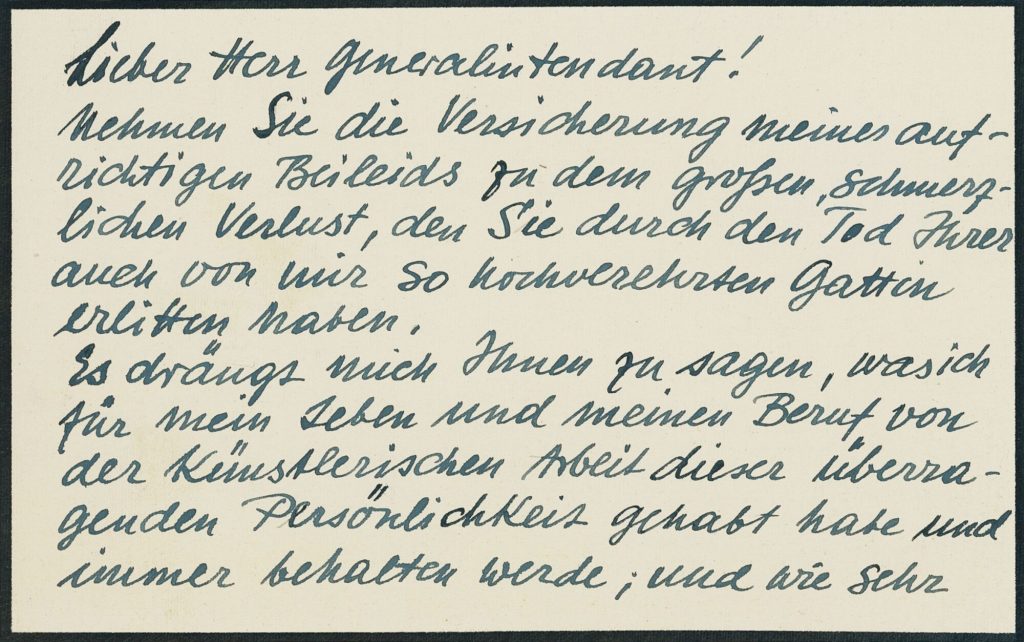 Lieber Herr Generalintendant!
Nehmen Sie die Versicherung meines auf-
richtigen Beileids zu dem großen, schmerz-
lichen Verlust, den Sie durch den Tod Ihrer
auch von mir so hochverehrten Gattin
erlitten haben.
Es drängt mich Ihnen zu sagen, was ich
für mein Leben und meinen Beruf von
der künstlerischen Arbeit dieser überra-
genden Persönlichkeit gehabt habe und
immer behalten werde; und wie sehr